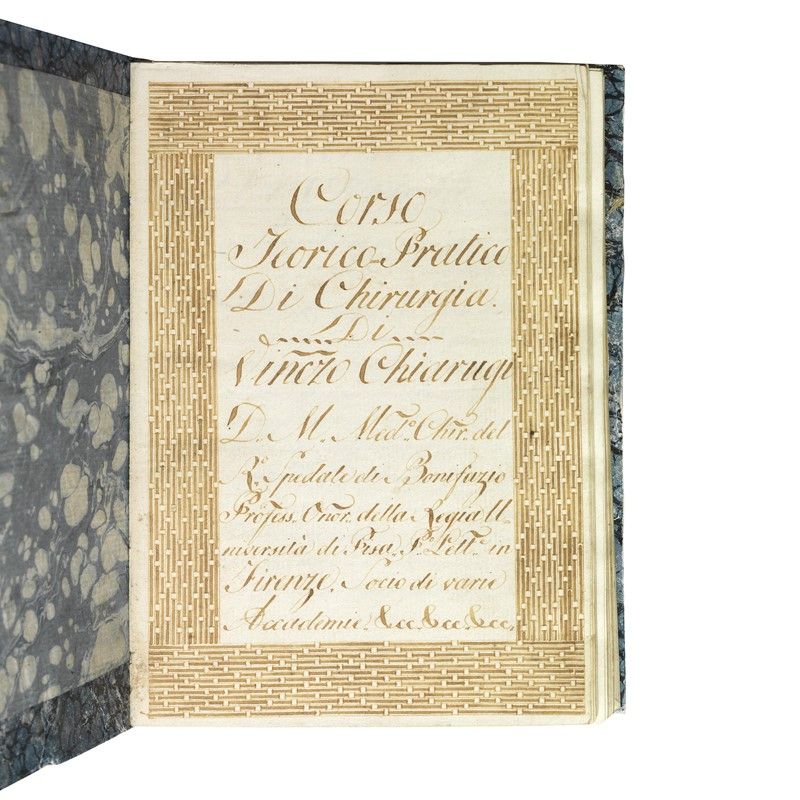 Corso
Teorico-Pratico
Di Chirurgia.
Di
Vinc̃zo Chiarugi
D. M. Med.º Chir. del
R.º Spedale di Bonifazio
Profess. Onor. della Regia U-
niversità di Pisa. P.º Lett.º in
Firenze, Socio di varie
Accademie. &cc. &cc. &cc.